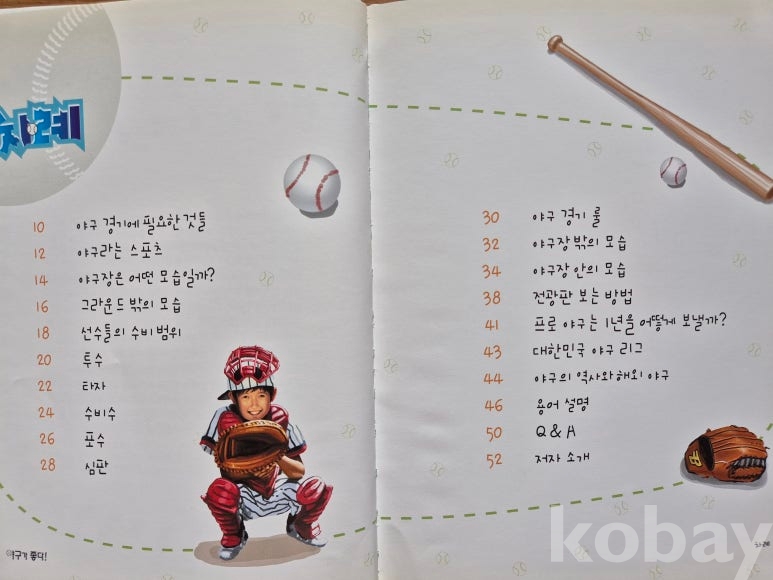 차례
10 야구 경기에 필요한 것들
12 야구라는 스포츠
14 야구장은 어떤 모습일까?
16 그라운드 밖의 모습
18 선수들의 수비 범위
20 투수
22 타자
24 수비수
26 포수
28 심판
야구가 좋다!
30 야구 경기 룰
32 야구장 밖의 모습
34 야구장 안의 모습
38 전광판 보는 방법
41 프로 야구는 1년을 어떻게 보낼까?
43 대한민국 야구 리그
44 야구의 역사와 해외 야구
46 용어 설명
50 Q & A
52 저자 소개
차례
kobay